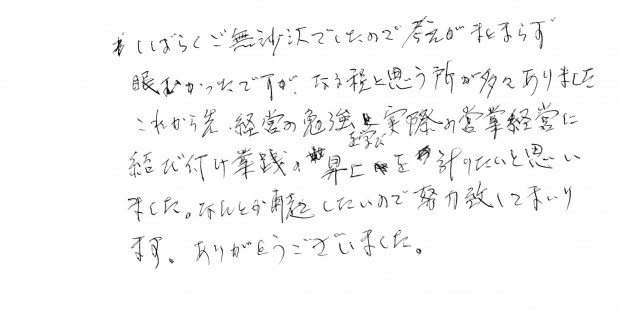 しばらくご無沙汰でしたので考えがまとまらず
眠むかったですが、なる程と思う所が多々ありました
これから先、経営の勉強を学び実際の営業経営に
結び付け業践の昇上を計りたいと思い
ました。なんとか開起したいので努力致してまいり
ます。ありがとうございました。